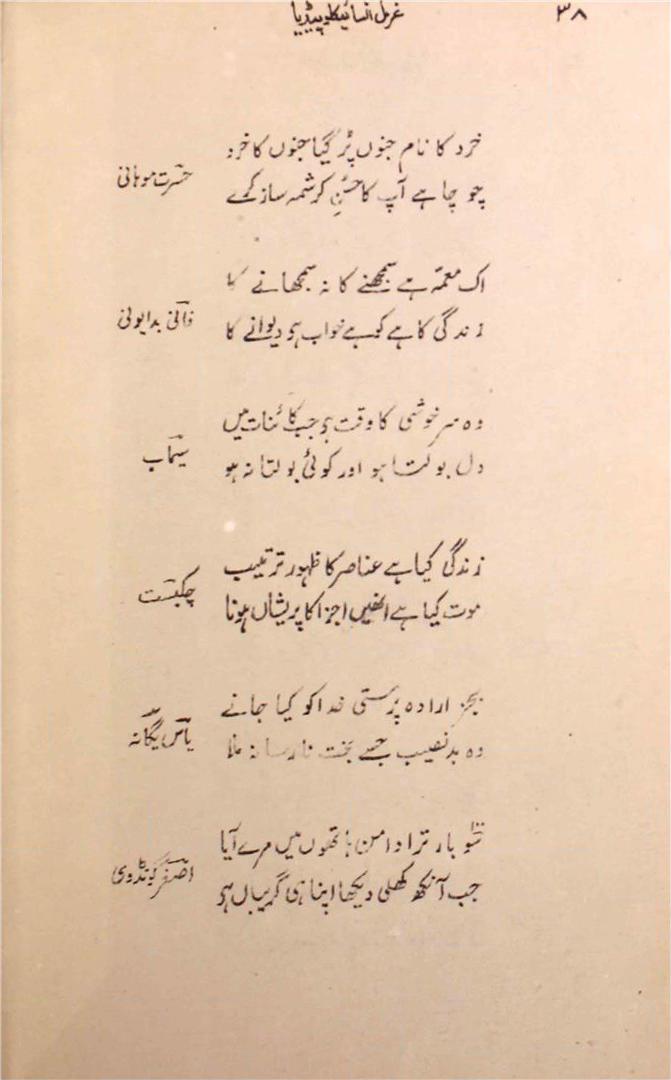 غزل انسائیکلوپیڈیا ۳۸
خرد کا نام جنوں پڑ گیا جنوں کا خرد
جو چاہے آپ کا حسنِ کرشمہ ساز کرے
حسرت موہانی
اک معمہ ہے سمجھنے کا نہ سمجھانے کا
زندگی کاہے کو ہے خواب ہی دیوانے کا
فانی بدایونی
وہ سرخوشی کا وقت ہو جب کائنات میں
دل بولتا ہو اور کوئی بولتا نہ ہو
سیماب
زندگی کیا ہے عناصر کا ظہور ترتیب
موت کیا ہے انھیں اجزا کا پریشاں ہونا
چکبست
بجز ارادہ پرستی خدا کو کیا جانے
وہ بدنصیب جسے بخت نارسا نہ ملا
یاس یگانہ
سو بار ترا دامن ہاتھوں میں مرے آیا
جب آنکھ کھلی دیکھا اپنا ہی گریباں ہو
اصغر گونڈوی